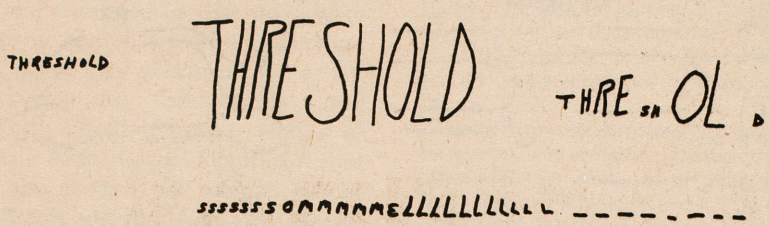 THRESHOLD THRESHOLD THRESHOLD
sssssssOMMMMMELLLLLLLLLLL ________